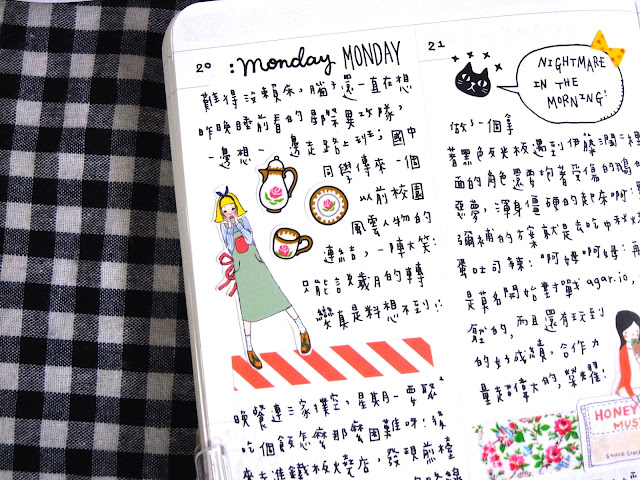 20 :monday MONDAY
難得沒賴床，腦子還一直在想
昨晚睡前看的星際異攻隊，
一邊想一邊走路上班；國中
同學傳來一個
以前校園
風雲人物的
連結，一陣大笑：
只能說歲月的轉
變真是料想不到
晚餐連三家撲空，星期一要
吃個飯怎麼那麼困難呀！後
來走進鐵板燒店，發現煎檯
21
NIGHTMARE
IN THE
MORNING!
做了一個拿
著黑色瓦米板遇到伊藤潤二裡
面的角色還要抱著受傷的
惡夢，渾身僵硬的起床啊！
彌補的方案就是去吃中
蛋吐司辣！啊姆啊姆！再
是莫名開始對戰agar.io，
的，而且還有玩到
的好成績，合作力
量是偉大的，榮耀！
HONEY
MUS